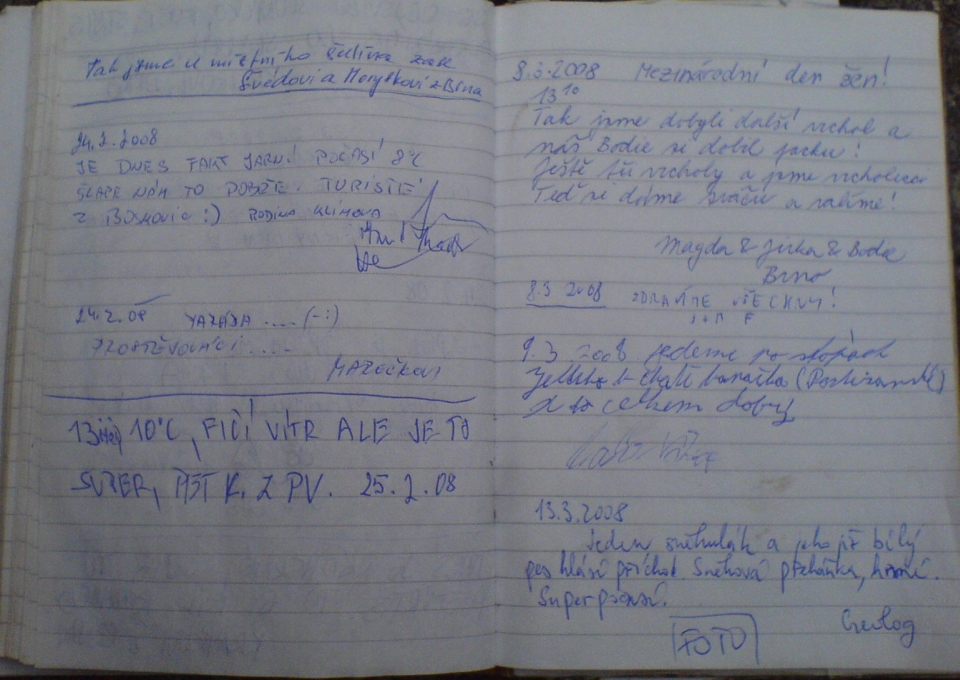 Tak jsme u místního
Švédovi a z Brna
24.2.2008
JE DNES FAKT JARNÍ POČASÍ 8°C
ŠLAPE NÁM TO DOBŘE. TURISTÉ
Z BOSKOVIC :) RODINA KLÍMOVA
24.2.08 .... (-:)
PROSTĚJOVÁCI ....
MAZÁČKOVI
10°C, FIČÍ VÍTR ALE JE TO
SUPER, K. Z PV. 25.2.08
8.3.2008 Mezinárodní den žen!
13¹⁰
Tak jsme dobyli další vrchol a
náš Bodie si dobil packu!
Ještě tři vrcholy a jsme vrcholoví
Teď si dáme svačču a valíme!
Magda & Jirka & Bodie
Brno
8.3 2008 ZDRAVÍME VŠECHNY!
9.3 2008 jedeme po stopách
k chatě
je to celkem dobrý
13.3.2008
Jeden sněhulák a jeho bílý
pes hlásí příchod. Sněhová přeháňka, hřmí.
Super počasí.
FOTO